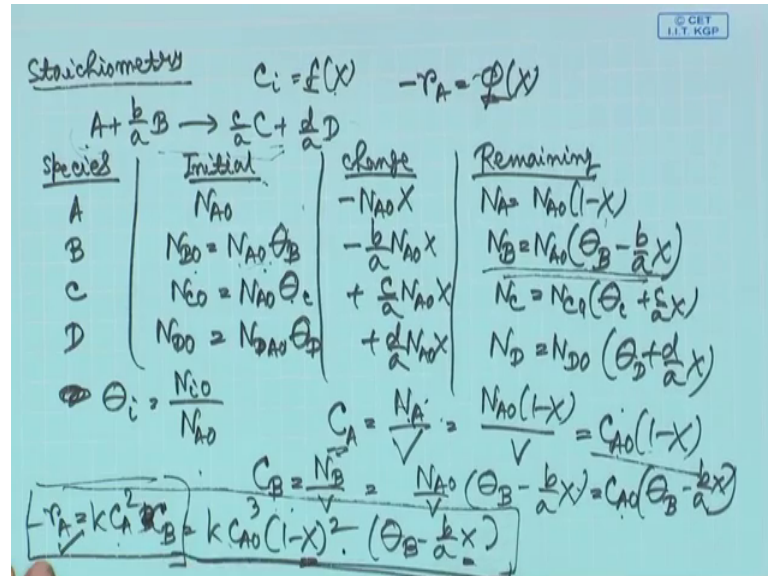 © CET
I.I.T. KGP
Stoichiometry C_i = f(X) -r_A = φ(X)
A + b/a B → c/a C + d/a D
Species Initial Change Remaining
A N_A0 -N_A0 X N_A = N_A0(1-X)
B N_B0 = N_A0 Θ_B -b/a N_A0 X N_B = N_A0(Θ_B - b/a X)
C N_C0 = N_A0 Θ_C + c/a N_A0 X N_C = N_C0(Θ_C + c/a X)
D N_D0 = N_DA0 Θ_D + d/a N_A0 X N_D = N_D0 (Θ_D + d/a X)
Θ_i = N_i0/N_A0
C_A = N_A/V = N_A0(1-X)/V = C_A0(1-X)
C_B = N_B/V = N_A0/V (Θ_B - b/a X) = C_A0(Θ_B - b/a X)
-r_A = k C_A^2 C_B = k C_A0^3 (1-X)^2 · (Θ_B - b/a X)